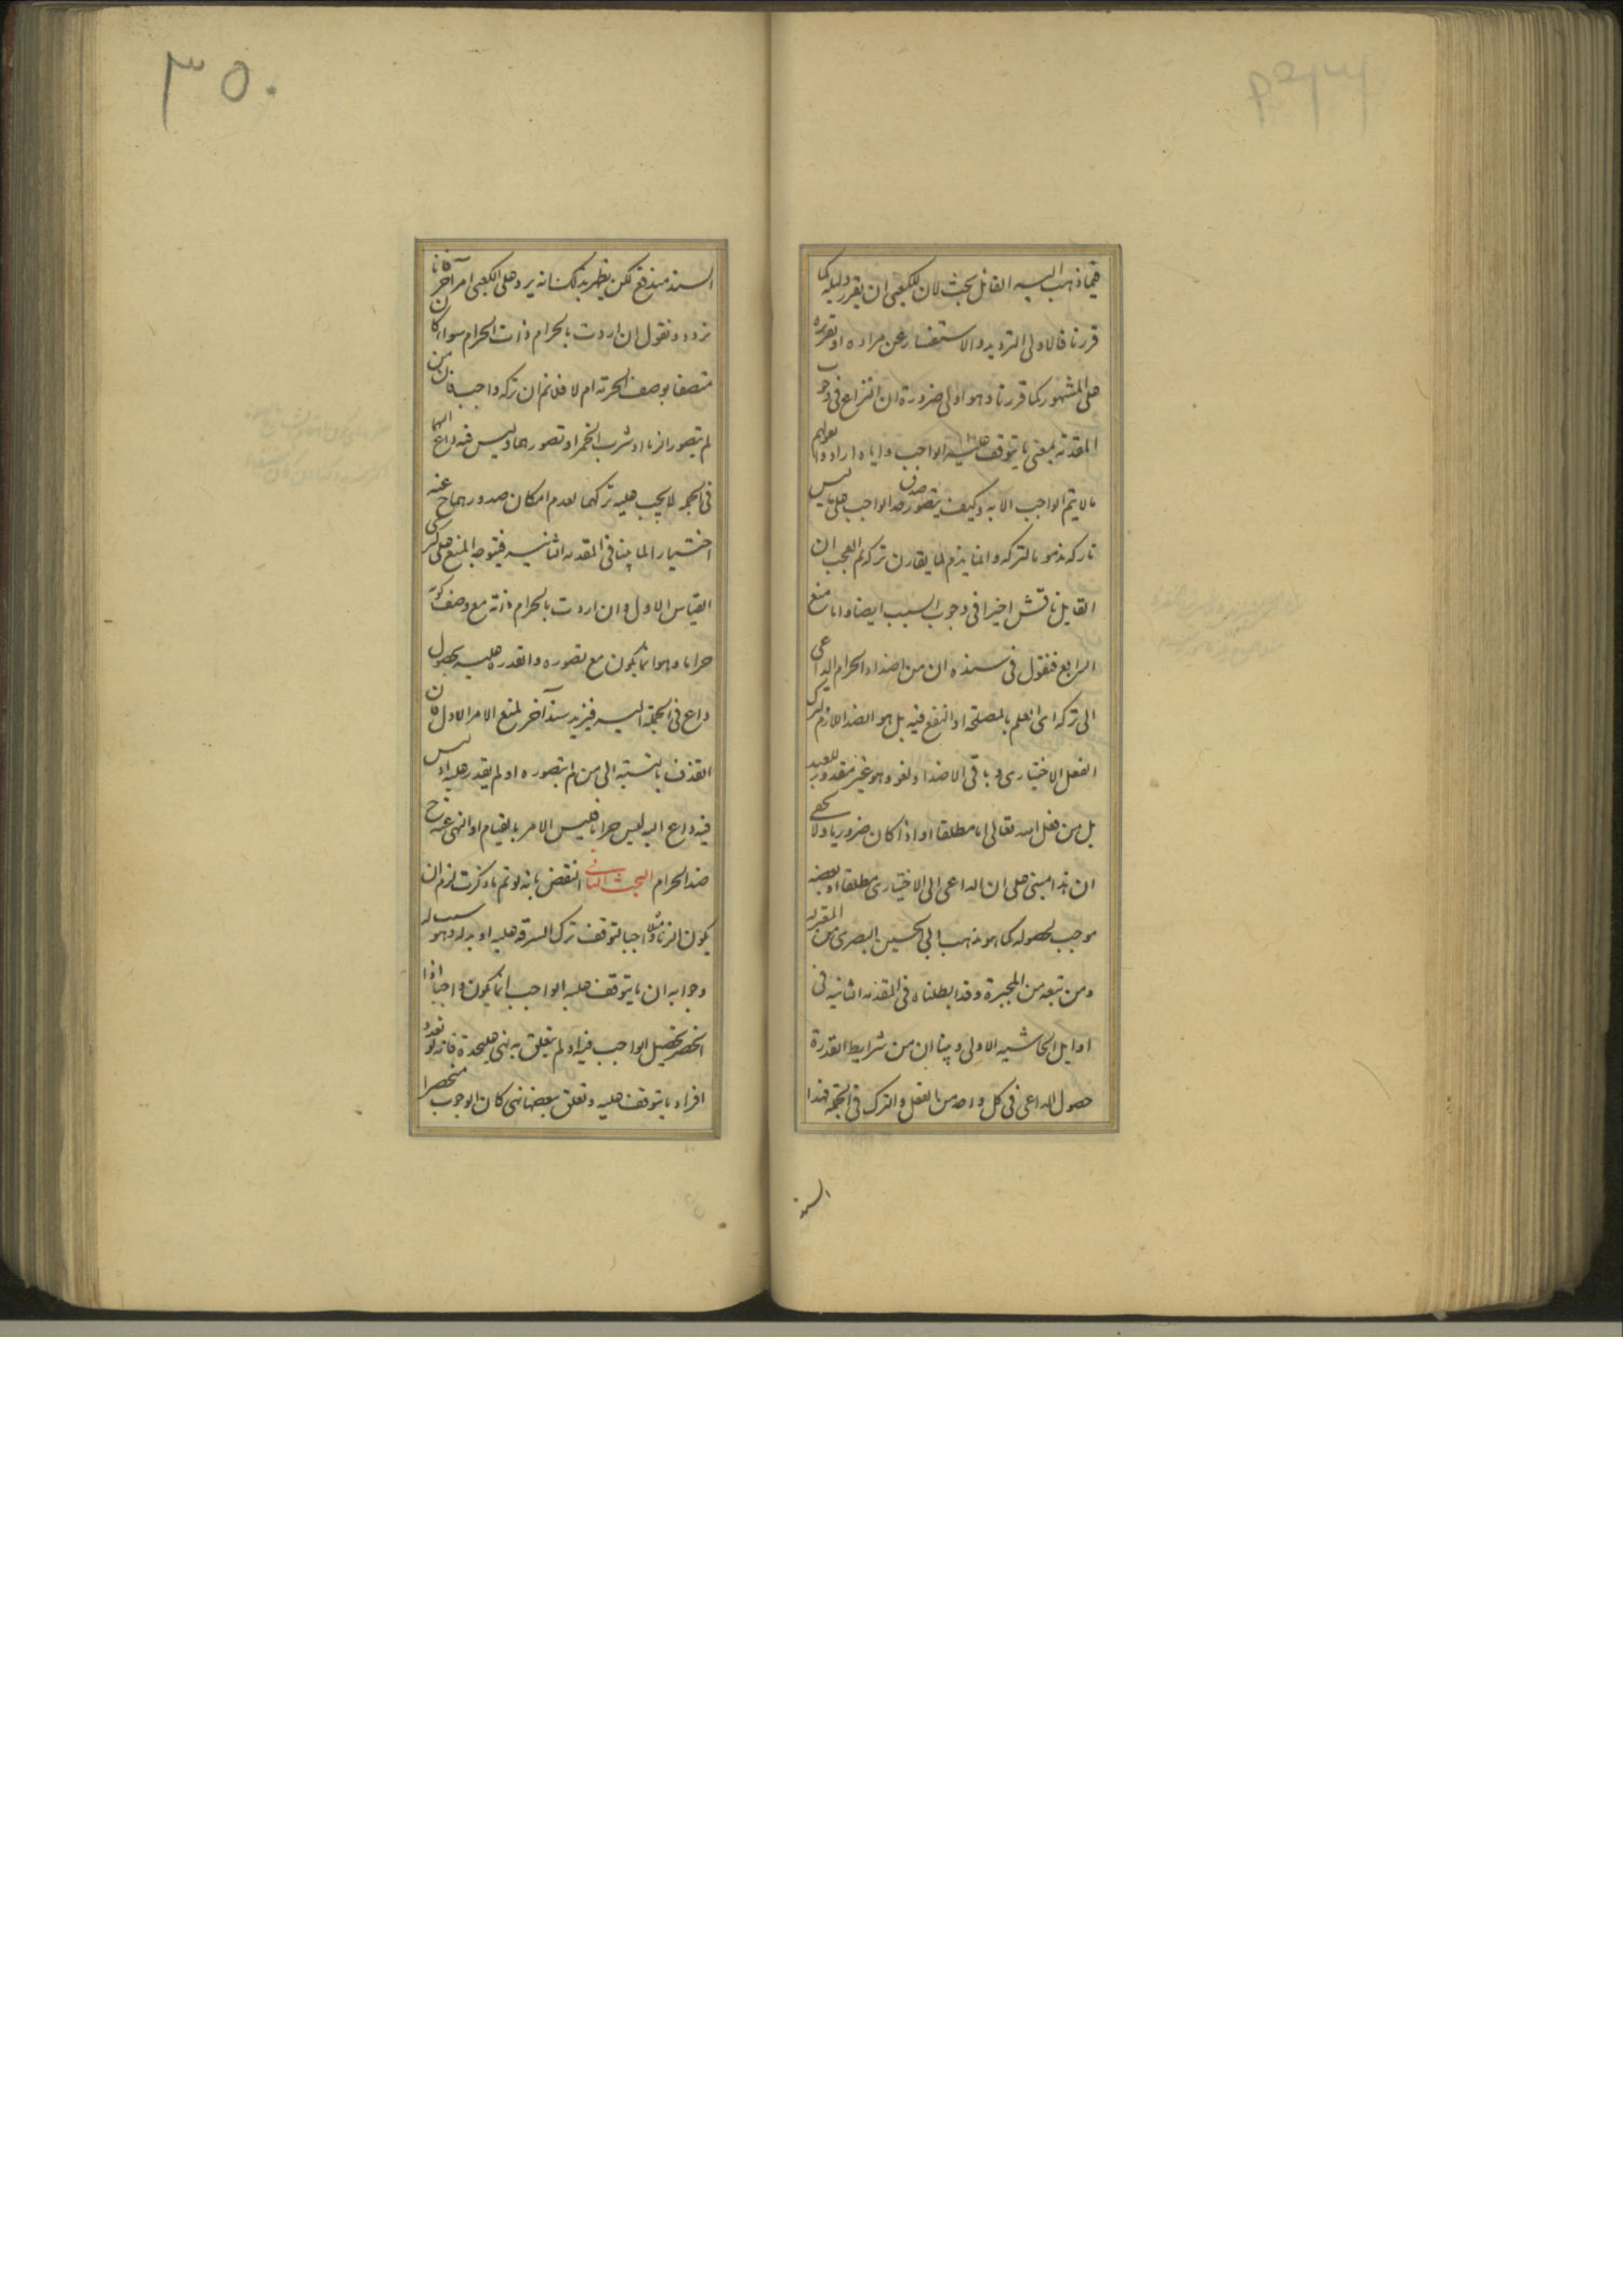 فيما ذهب اليه القائل بحث لان للكعبى ان يقرر دليله كما
قررنا فالاولى الترديد والاستفسار عن مراده او تقريره
على المشهور كما قررنا وهو اولى ضرورة ان النزاع فى وجوب
المقدمة بمعنى ما يتوقف عليه الواجب واياه ارادوا بقولهم
ما لا يتم الواجب الا به وكيف يتصور صدق حد الواجب على ما ليس
تاركه مذموما لتركه وانما يذم لما يقارن تركه ثم العجب ان
القايل ناقش اخيرا فى وجوب السبب ايضا واما منع
الرابع فنقول فى سنده ان من اضداد الحرام الداعى
الى تركه اى العلم بالمصلحة او النفع فيه بل هو الضد اللازم لترك
الفعل الاختيارى وباقى الاضداد لغو وهو غير مقدور للعبد
بل من فعل الله تعالى اما مطلقا او اذا كان ضروريا ولا يخفى
ان هذا مبنى على ان الداعى الى الاختيارى مطلقا او بعضه
موجب لحصوله كما هو مذهب ابى الحسين البصرى من المعتزله
ومن تبعه من المجبرة وقد ابطلناه فى المقدمه الثانيه فى
اوايل الحاشيه الاولى وبينا ان من شرايط القدرة
حصول الداعى فى كل واحد من الفعل والترك فى الجمله فهذا
السند
٣٥٠
السند مندفع لكن يظهر بذلك انه يرد على الكعبى امر آخر فانا
نردد ونقول ان اردت بالحرام ذات الحرام سواء كان
متصفا بوصف الحرمة ام لا فلا نم ان تركه واجب فان من
لم يتصور الزنا او شرب الخمر او تصورهما وليس فيه داع اليهما
فى الجمله لا يجب عليه تركهما لعدم امكان صدورهما ح عنه
اختيارا لما بينا فى المقدمه الثانيه فيتوجه المنع على كبرى
القياس الاول وان اردت بالحرام ذاته مع وصف كونه
حراما وهو انما يكون مع تصوره والقدره عليه بحصول
داع فى الجمله اليه فيزيد سندا آخر لمنع الامر الاول فان
القذف بالنسبة الى من لم يتصوره او لم يقدر عليه اذ ليس
فيه داع اليه ليس حراما فليس الامر بالقيام او النهى عنه ح
ضد الحرام البحث الثانى النقض بانه لو تم ما ذكرت لزم ان
يكون الزنا مثلا واجبا لتوقف ترك السرقه عليه او بدله وهو سبب له
وجوابه ان ما يتوقف عليه الواجب انما يكون واجبا اذا
انحصر تحصيل الواجب فيه او لم يتعلق به نهى عليحدة فانه لو تعدد
افراد ما يتوقف عليه وتعلق ببعضها نهى كان الوجوب منحصرا